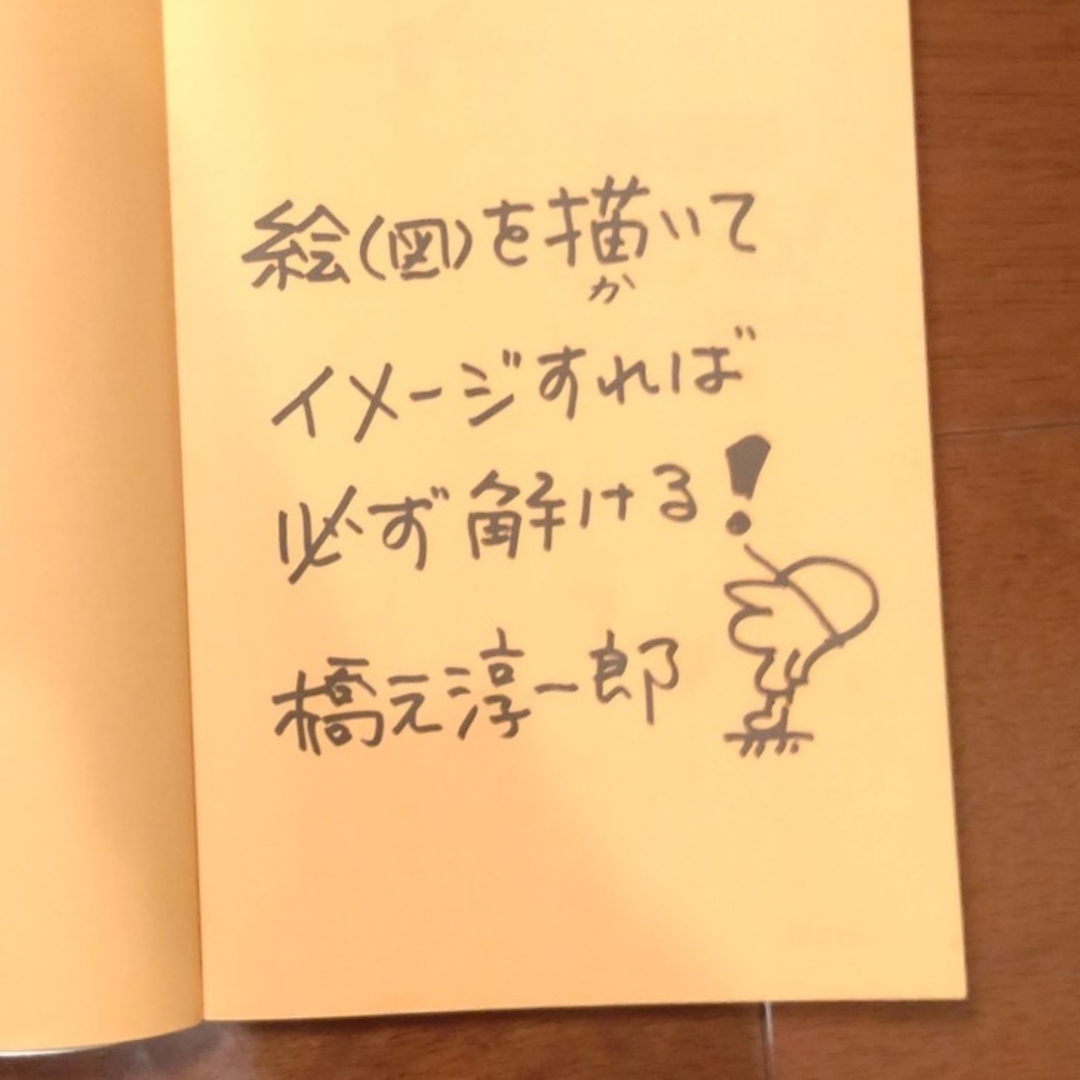 絵(図)を描いて
か
イメージすれば
必ず解ける!
橋元淳一郎